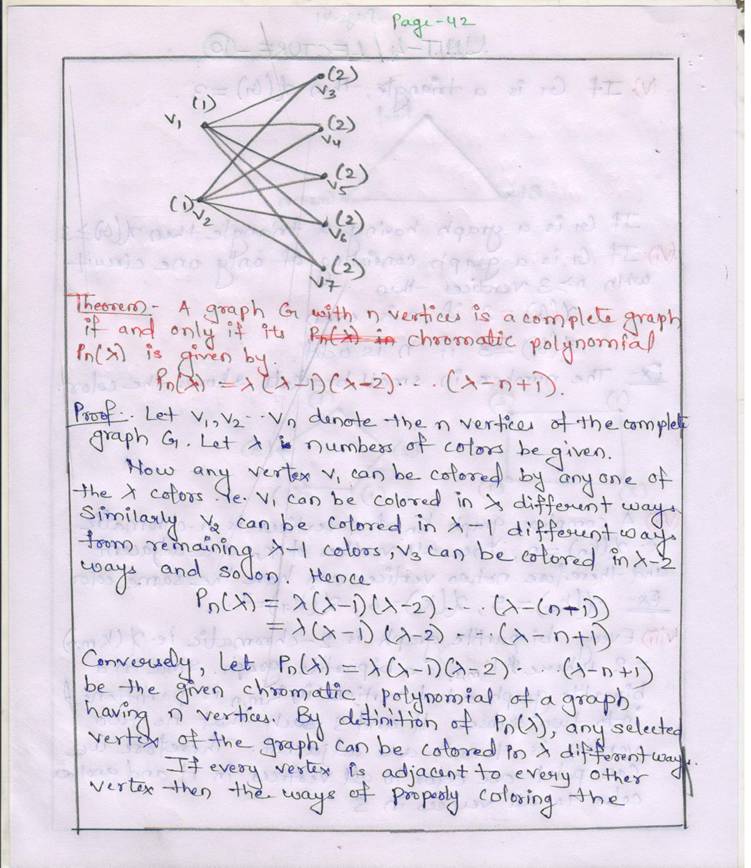 Page-42
(2)
V3
(1)
V1
(2)
V4
(2)
V5
(1) V2
(2)
V6
(2)
V7
Theorem:- A graph G with n vertices is a complete graph
if and only if its Pn(λ) in chromatic polynomial
Pn(λ) is given by.
Pn(λ) = λ(λ-1)(λ-2)... (λ-n+1).
Proof:. Let V1, V2 .. Vn denote the n vertices of the complete
graph G. Let λ is numbers of colors be given.
Now any vertex V1 can be colored by any one of
the λ colors ie. V1 can be colored in λ different ways
Similarly V2 can be colored in λ-1 different ways
from remaining λ-1 colors, V3 can be colored in λ-2
ways and so on. Hence
Pn(λ) = λ(λ-1)(λ-2) --.. (λ-(n-1))
= λ(λ-1)(λ-2) --.. (λ-n+1)
Conversely, Let Pn(λ) = λ(λ-1)(λ-2).... (λ-n+1)
be the given chromatic polynomial of a graph
having n vertices. By definition of Pn(λ), any selected
vertex of the graph can be colored in λ different ways.
If every vertex is adjacent to every other
vertex then the ways of properly coloring the